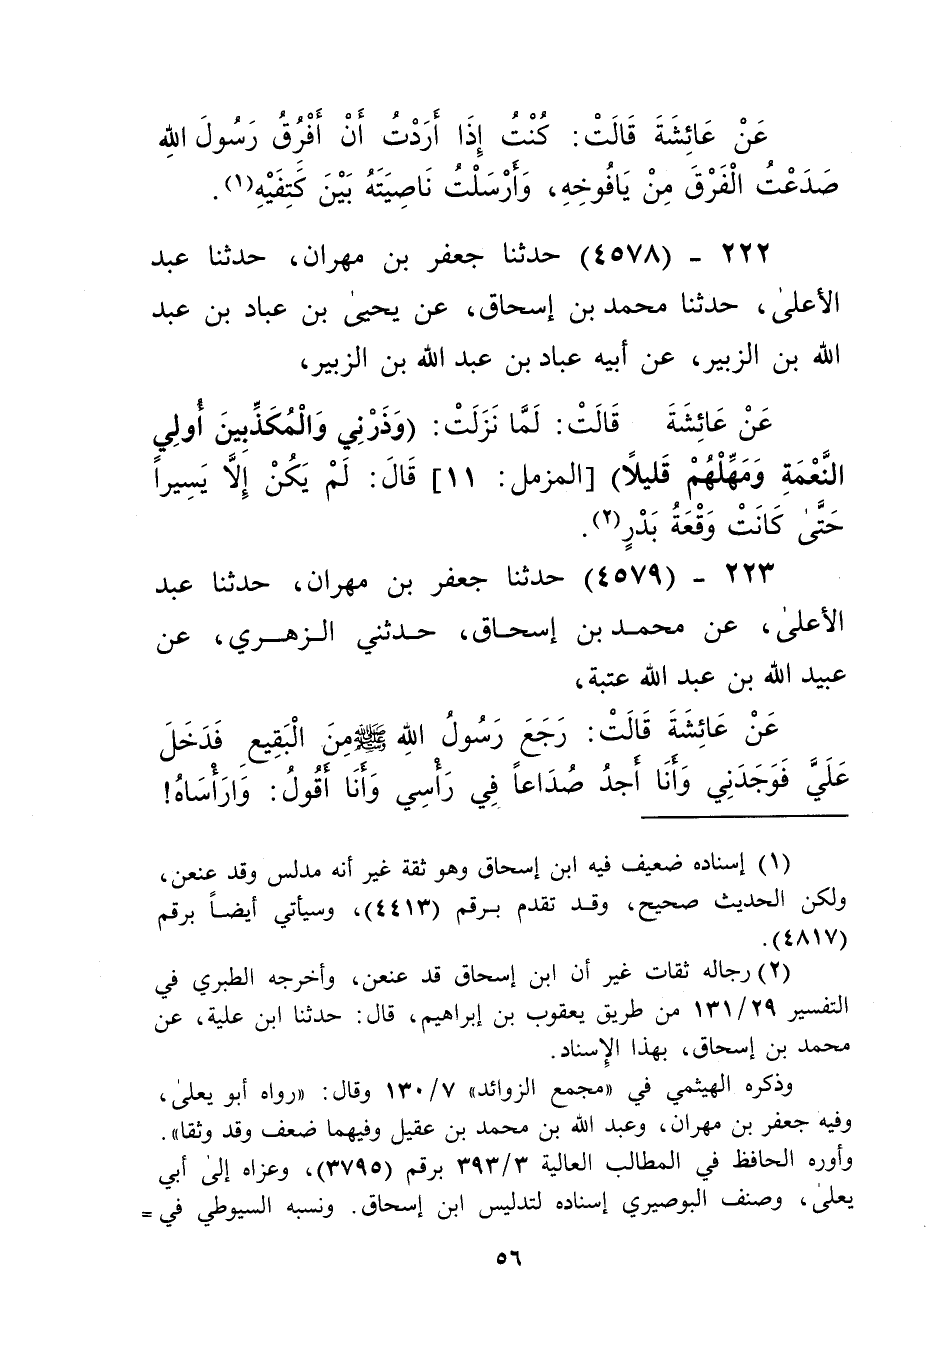 عَنْ عَائِشَةَ قَالَتْ: كُنْتُ إِذَا أَرَدْتُ أَنْ أَفْرُقُ رَسُولَ اللهِ
صَدَعْتُ الْفَرْقَ مِنْ يَافُوخِهِ، وَأَرْسَلْتُ نَاصِيَتَهُ بَيْنَ كَتِفَيْهِ(١).
٢٢٢ - (٤٥٧٨) حدثنا جعفر بن مهران، حدثنا عبد
الأعلىٰ، حدثنا محمد بن إسحاق، عن يحيىٰ بن عباد بن عبد
الله بن الزبير، عن أبيه عباد بن عبد الله بن الزبير،
عَنْ عَائِشَةَ قَالَتْ: لَمَّا نَزَلَتْ: (وَذَرْنِي وَالْمُكَذِّبِينَ أُولِي
النَّعْمَةِ وَمَهِّلْهُمْ قَلِيلاً) [المزمل: ١١] قَالَ: لَمْ يَكُنْ إِلاَّ يَسِيراً
حَتَّىٰ كَانَتْ وَقْعَةُ بَدْرٍ(٢).
٢٢٣ - (٤٥٧٩) حدثنا جعفر بن مهران، حدثنا عبد
الأعلىٰ، عن محمد بن إسحاق، حدثني الزهري، عن
عبيد الله بن عبد الله عتبة،
عَنْ عَائِشَةَ قَالَتْ: رَجَعَ رَسُولُ اللهِ ﷺ مِنَ الْبَقِيعِ فَدَخَلَ
عَلَيَّ فَوَجَدَنِي وَأَنَا أَجِدُ صُدَاعاً فِي رَأْسِي وَأَنَا أَقُولُ: وَارَأْسَاهُ!
(١) إسناده ضعيف فيه ابن إسحاق وهو ثقة غير أنه مدلس وقد عنعن،
ولكن الحديث صحيح، وقد تقدم برقم (٤٤١٣)، وسيأتي أيضاً برقم
(٤٨١٧).
(٢) رجاله ثقات غير أن ابن إسحاق قد عنعن، وأخرجه الطبري في
التفسير ١٣١/٢٩ من طريق يعقوب بن إبراهيم، قال: حدثنا ابن علية، عن
محمد بن إسحاق، بهذا الإسناد.
وذكره الهيثمي في «مجمع الزوائد» ١٣٠/٧ وقال: «رواه أبو يعلىٰ،
وفيه جعفر بن مهران، وعبد الله بن محمد بن عقيل وفيهما ضعف وقد وثقا».
وأوره الحافظ في المطالب العالية ٣٩٣/٣ برقم (٣٧٩٥)، وعزاه إلىٰ أبي
يعلىٰ، وصنف البوصيري إسناده لتدليس ابن إسحاق. ونسبه السيوطي في =
٥٦